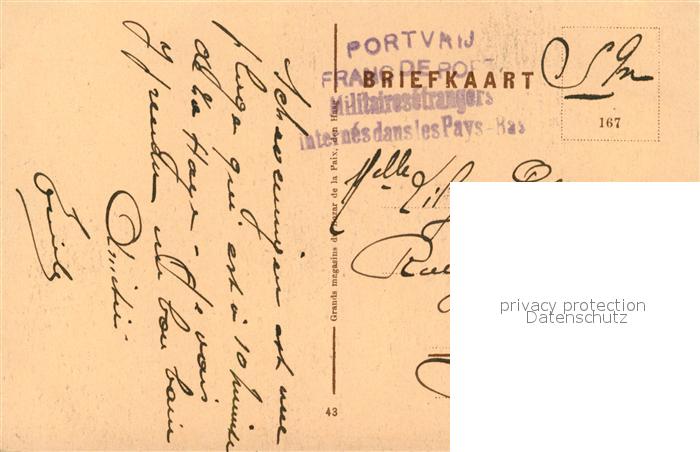 PORTVRIJ
FRANC DE PORT
Militaires étrangers
internés dans les Pays-Bas
BRIEFKAART
S. M.
167
Melle
Grands magasins du Bazar de la Paix, den Haag
43
Scheveningen est une
plage qui est à 10 minutes
de la Haye - Je vais
y prendre un bon bain
Amitiés
privacy protection
Datenschutz